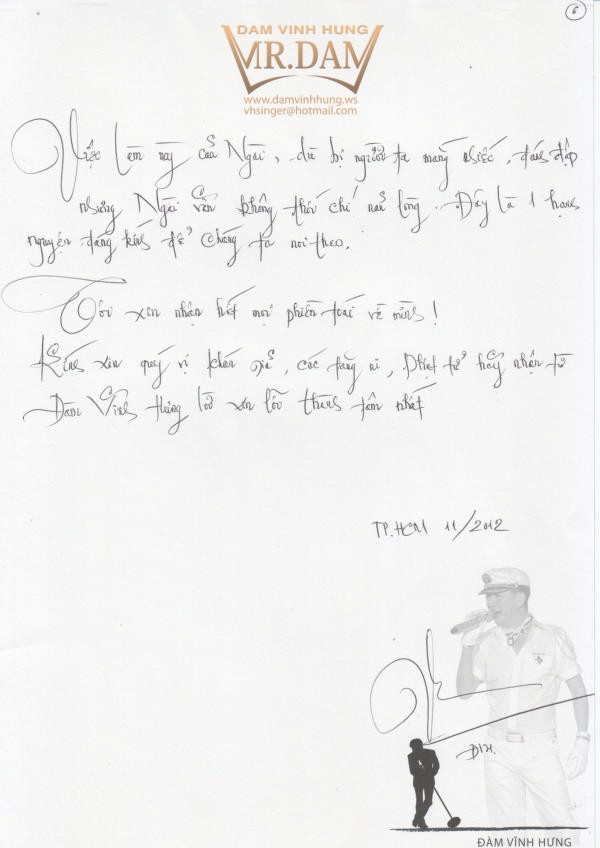 6
DAM VINH HUNG
MR.DAM
www.damvinhhung.ws
vhsinger@hotmail.com
Việc làm này của Ngài, dù bị người ta mang nhiếc, đánh đập
nhưng Ngài vẫn không thối chí nản lòng. Đây là 1 hạnh
nguyện đáng kính để chúng ta noi theo.
Tôi xin nhận hết mọi phiền toái về mình!
Kính xin quý vị khán giả, các tăng ni, Phật tử hãy nhận từ
Đàm Vĩnh Hưng lời xin lỗi thành tâm nhất
TP.HCM 11/2012
ĐVH.
ĐÀM VĨNH HƯNG